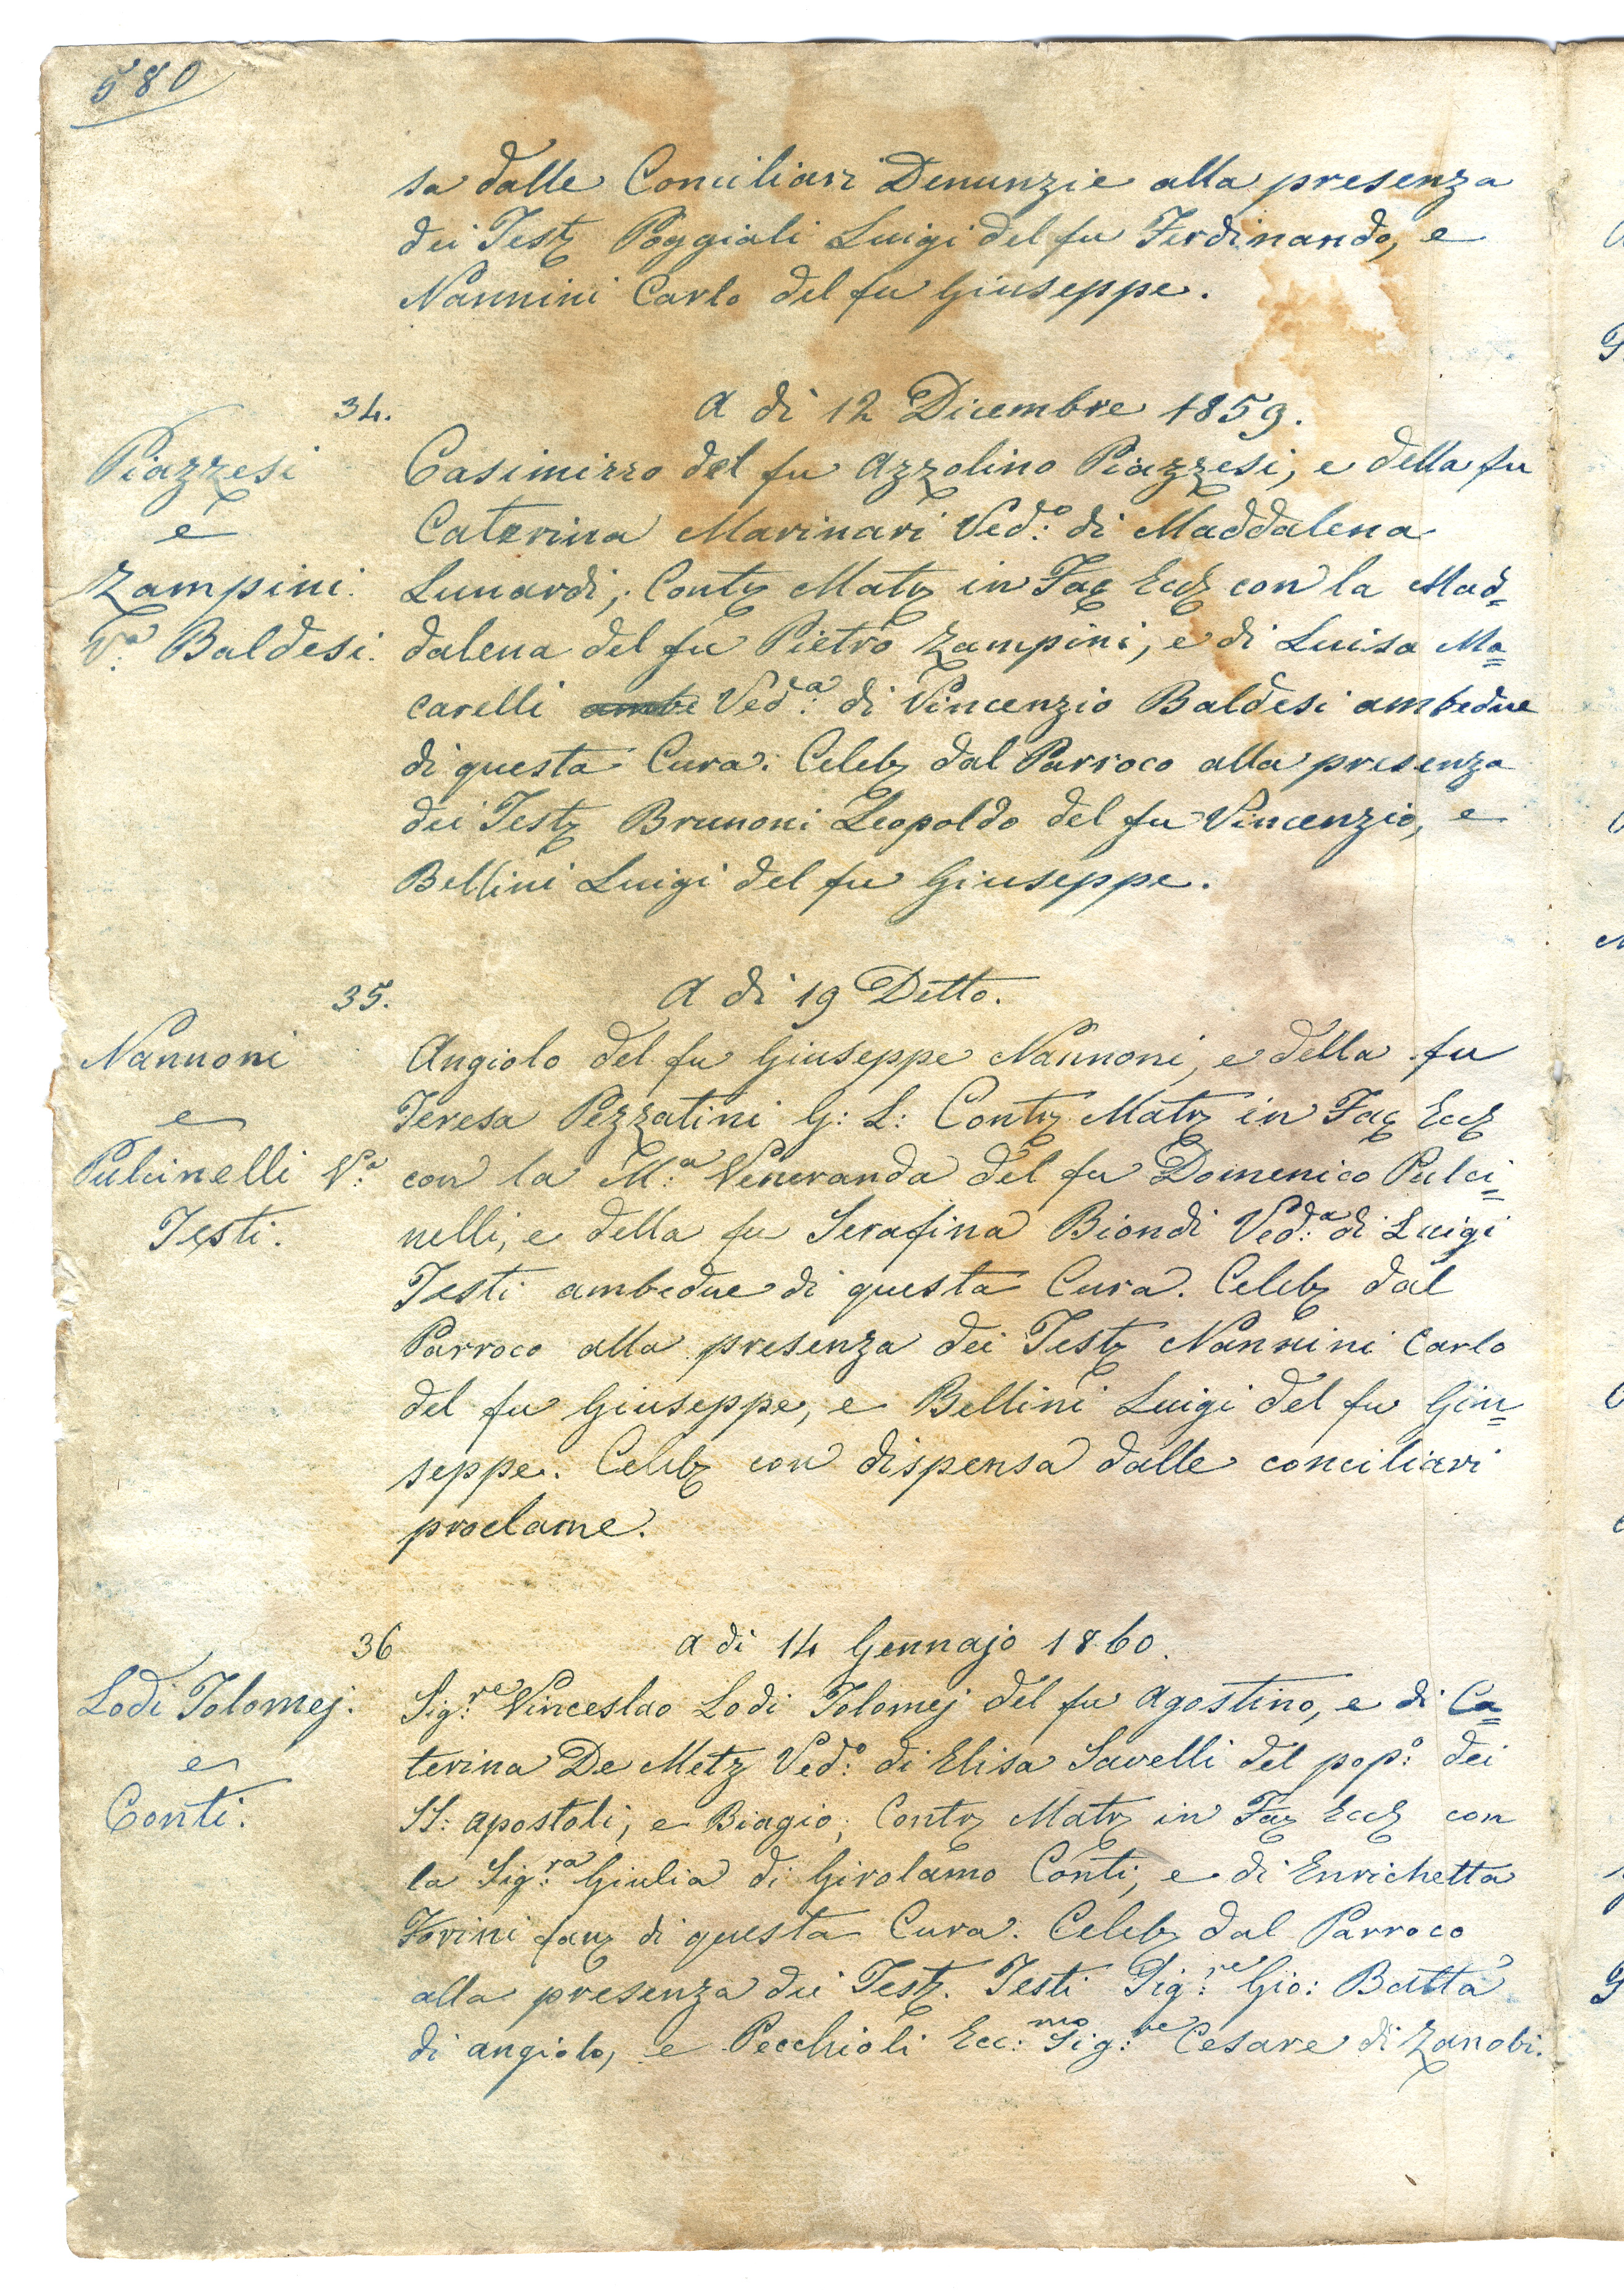 580
sa dalle Conciliari Denunzie alla presenza
dei Testz Poggiali Luigi del fu Ferdinando, e
Nannini Carlo del fu Giuseppe.
34.
A dì 12 Dicembre 1859.
Piazzesi
e
Zampini.
Vª Baldesi.
Casimirro del fu Azzolino Piazzesi, e della fu
Caterina Marinari Ved:º di Maddalena
Lunardi; Contz Matz in Facz Eccz con la Mad=
dalena del fu Pietro Zampini, e di Luisa Ma=
carelli ambe Ved:ª di Vincenzio Baldesi ambedue
di questa Cura. Celebz dal Parroco alla presenza
dei Testz Brunoni Leopoldo del fu Vincenzio, e
Bellini Luigi del fu Giuseppe.
35.
A dì 19 Detto.
Nannoni
e
Pulcinelli V:ª
Testi.
Angiolo del fu Giuseppe Nannoni, e della fu
Teresa Pezzatini G: L: Contz Matz in Facz Eccz
con la M:ª Veneranda del fu Domenico Pulci=
nelli, e della fu Serafina Biondi Ved:ª di Luigi
Testi ambedue di questa Cura. Celebz dal
Parroco alla presenza dei Testz Nannini Carlo
del fu Giuseppe, e Bellini Luigi del fu Giu=
seppe. Celebz con dispensa dalle conciliari
proclame.
36
A dì 14 Gennajo 1860.
Lodi Tolomej.
e
Conti.
Sig:re Vinceslao Lodi Tolomej del fu Agostino, e di Ca=
terina De Metz Ved:º di Elisa Savelli del pop:º dei
SS: Apostoli, e Biagio; Contz Matz in Facz Eccz con
la Sig:ra Giulia di Girolamo Conti, e di Enrichetta
Forini fanz di questa Cura. Celebz dal Parroco
alla presenza dei Testz. Testi Sig:re Gio: Batta
di Angiolo, e Pecchioli Ecc:mo Sig:re Cesare di Zanobi.